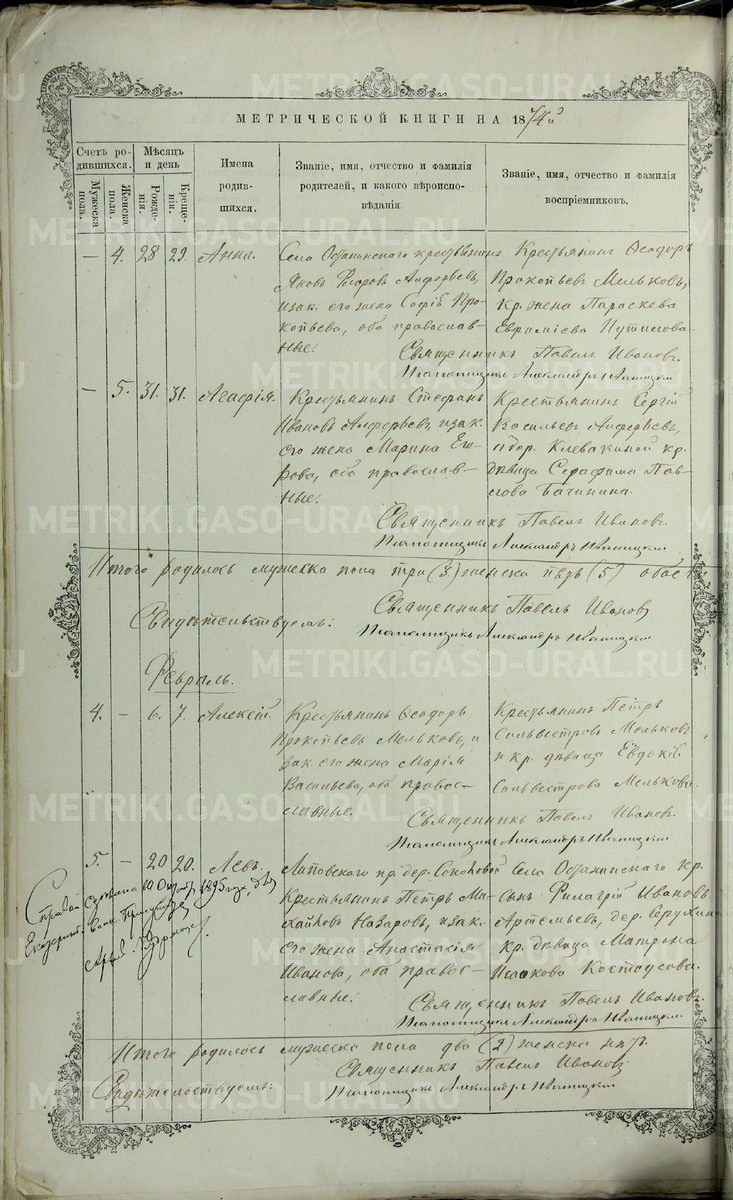 МЕТРИЧЕСКОЙ КНИГИ НА 1874й
Счетъ родившихся.
Мужеска пола.
Женска пола.
Мѣсяцъ и день
Рожденія.
Крещенія.
Имена родившихся.
Званіе, имя, отчество и фамилія родителей, и какого вѣроисповѣданія.
Званіе, имя, отчество и фамилія воспріемниковъ.
— 4. 28 29. Анна.
Села Останинскаго крестьянинъ
Яковъ Алферьевъ,
и зак. его жена Софія Про-
копьева, оба православ-
ные.
Крестьянинъ Ѳеодоръ
Прокопьевъ Мельковъ,
кр. жена Параскева
Евфимiева Путилова.
Священникъ Павелъ Ивановъ.
Псаломщикъ Александръ Иваницкій
— 5. 31. 31. Агафія.
Крестьянинъ Стефанъ
Ивановъ Алферьевъ, и зак.
его жена Марина Его-
рова, оба православ-
ные.
Крестьянинъ Сергій
Васильевъ Алферьевъ,
и дер. Клевакиной кр.
дѣвица Серафима Пав-
лова Бачинина.
Священникъ Павелъ Ивановъ.
Псаломщикъ Александръ Иваницкій
Итого родилось мужеска пола три (3.) женска пять (5) обоего
Священникъ Павелъ Ивановъ
Свидѣтельствуемъ:
Псаломщикъ Александръ Иваницкій
Февраль.
4. — 6. 7. Алексій.
Крестьянинъ Ѳеодоръ
Прокопьевъ Мельковъ, и
зак. его жена Марія
Васильева, оба правос-
лавные.
Крестьянинъ Петръ
Сильвестровъ Мельковъ
и кр. дѣвица Евдокія
Сильвестрова Мелькова.
Священникъ Павелъ Ивановъ.
Псаломщикъ Александръ Иваницкій
5. — 20 20. Левъ.
Липовскаго пр. дер. Соколовой
Крестьянинъ Петръ Ми-
хайловъ Назаровъ, и зак.
его жена Анастасія
Иванова, оба правос-
лавные.
Села Останинскаго кр.
сынъ Филагрій Ивановъ
Артемьевъ, дер.
кр. дѣвица Матрона
Исакова Костоусова.
Справка 10 1895 года,
Священникъ Павелъ Ивановъ.
Псаломщикъ Александръ Иваницкій
Итого родилось мужеска пола два (2) женска нѣтъ.
Священникъ Павелъ Ивановъ
Свидѣтельствуемъ:
Псаломщикъ Александръ Иваницкій
METRIKI.GASO-URAL.RU